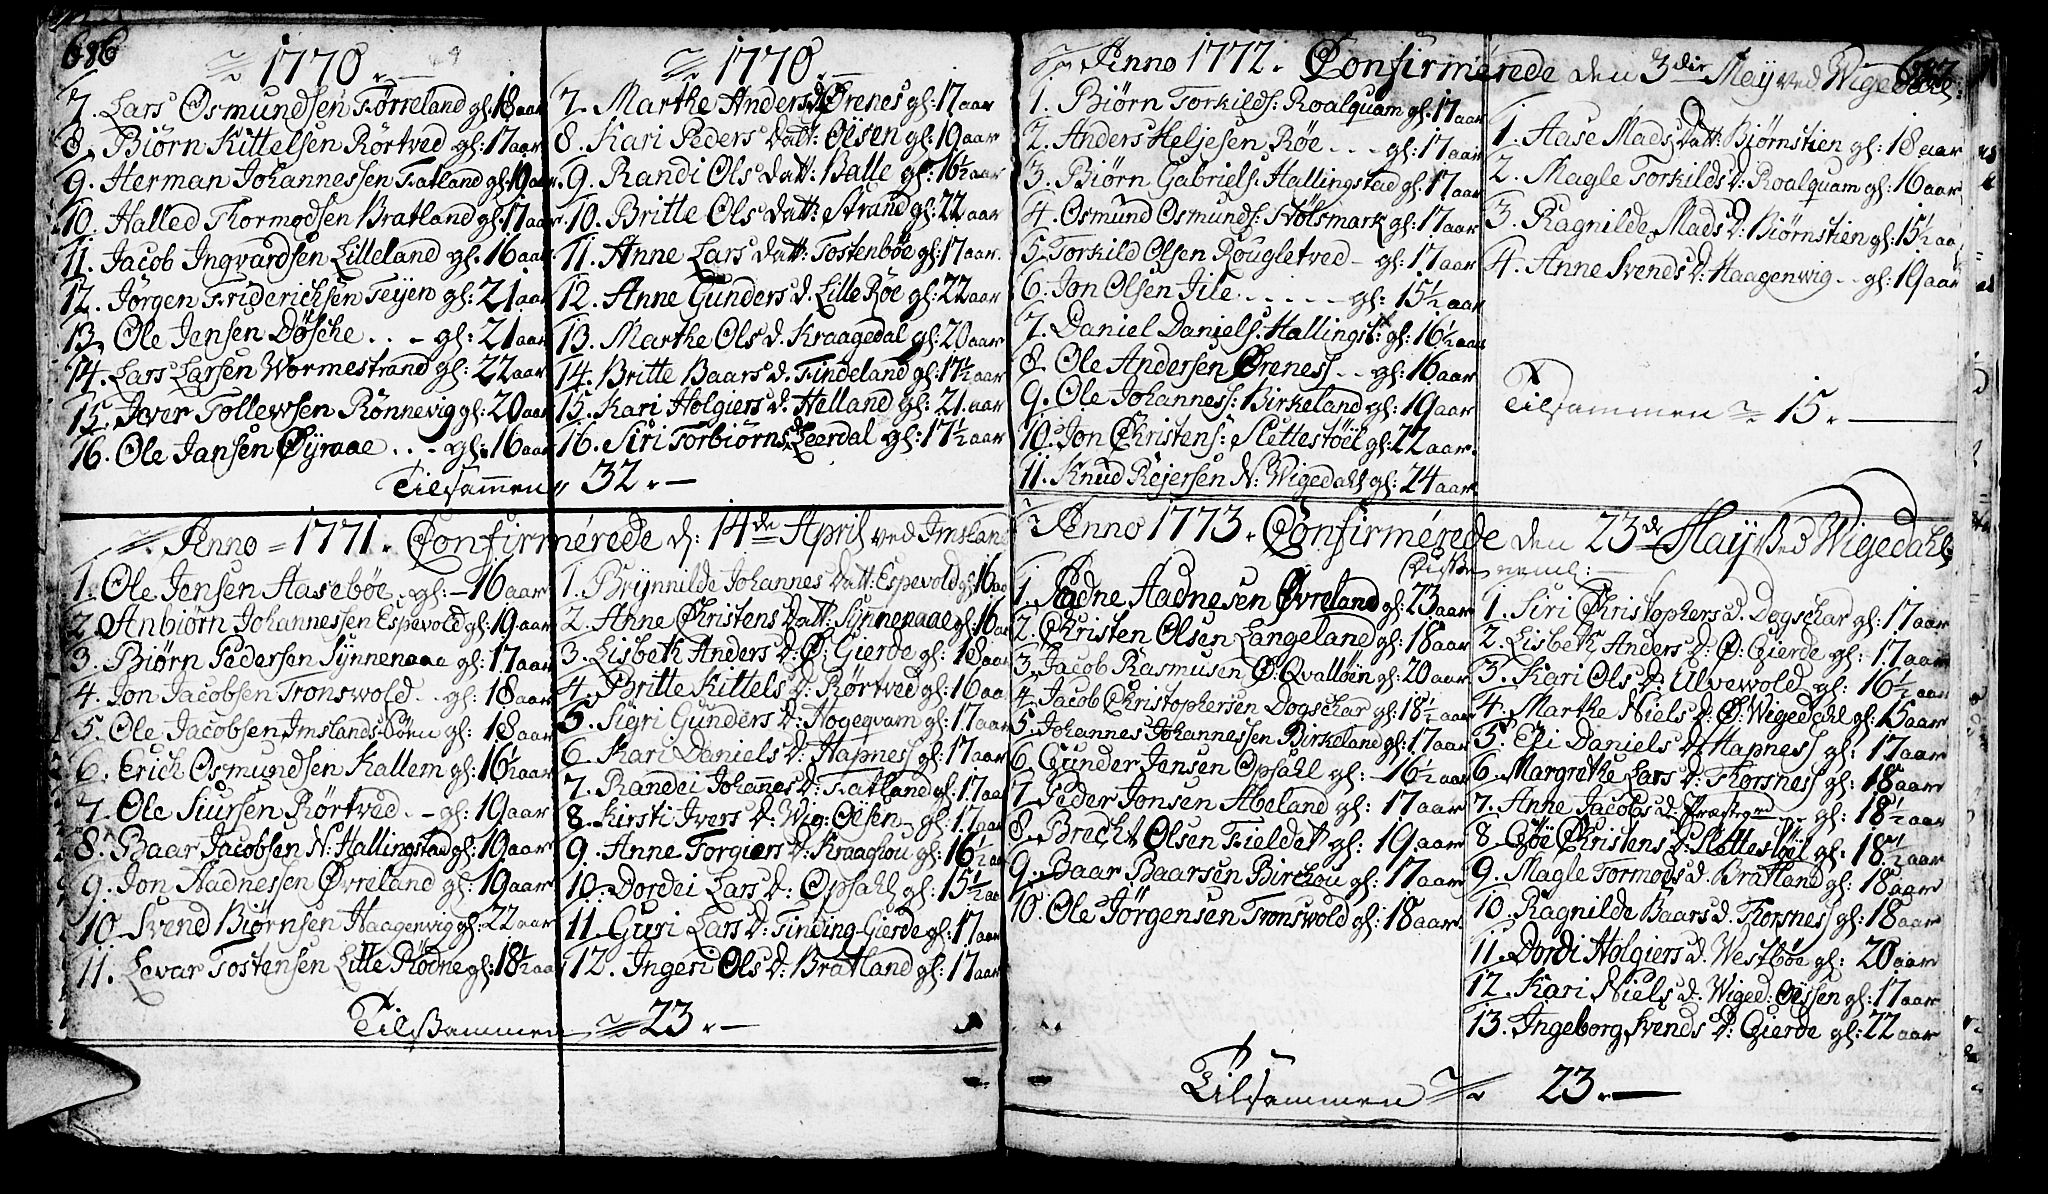 686
1770
7. Lars Osmundsen Førreland gl: 18 aar
8. Biørn Kittelsen Rørtved gl: 17 aar
9. Herman Johannessen Fatland gl: 19 aar
10. Halled Thormodsen Bratland gl: 17 aar
11. Jacob Ingvardsen Lilleland gl: 16 aar
12. Jørgen Friderichsen Feÿen gl: 21 aar
13. Ole Jensen Døsche . . - gl: 21 aar
14. Lars Larsen Wormestrand gl: 22 aar
15. Iver Tollewsen Rønnevig gl: 20 aar
16. Ole Jansen Øÿraae . . - gl: 16 aar
1770
7. Marthe Andersd. Ørenes gl: 17 aar
8. Kari Peders datt: Ølsen gl: 19 aar
9. Randi Ols datt: Balle gl: 16½ aar
10. Britte Ols datt: Strand gl: 22 aar
11. Anne Lars datt: Tostenbøe gl: 17 aar.
12. Anne Gunders d. Lille Røe gl: 22 aar
13. Marthe Ols d. Kraagedal gl: 20 aar
14. Britte Baars d. Findeland gl: 17½ aar
15. Kari Holgiers d. Helland gl: 21 aar
16. Siri Torbiørns d. Leerdal gl: 17½ aar
Tilsammen 32 -
Anno 1771. Confirmérede d: 14de April ved Imsland
1. Ole Jensen Aasebøe . gl: - 16 aar
2. Anbiørn Johannessen Espevold gl: 19 aar
3. Biørn Pedersen Synnenaae gl: 17 aar
4. Jon Jacobsen Tronswold . . gl: 18 aar
5. Ole Jacobsen Imslands-Søren gl: 18 aar
6. Erich Osmundsen Kallem gl: 16½ aar
7. Ole Siursen Rørtved . - gl: 19 aar
8. Baar Jacobsen N: Hallingstad gl: 19 aar
9. Jon Aadnesen Øvreland gl: 19 aar
10. Svend Biørnsen Haagenvig gl: 22 aar
11. Levar Tostensen Lille Rødne gl: 18½ aar
1. Brynnilde Johannes datt: Espevold gl: 16 aar
2. Anne Christens datt: Synnenaae gl: 16 aar
3. Lisbeth Anders d: Ø: Gierde gl: 18 aar
4. Britte Kittels d: Rørtved gl: 16 aar
5. Sigri Gunders d: Hogeqvam gl: 17 aar
6. Kari Daniels d: Hapnes gl: 17 aar
7. Randei Johannes d: Fatland gl: 17 aar
8. Kirsti Ivers d: Wig: Øÿsen - gl: 17 aar
9. Anne Torgiers d: Kraaghou gl: 16½ aar
10. Dordei Lars d: Opsahl gl: 15½ aar
11. Guri Lars d: Finding-Gierde gl: 17 aar
12. Ingeri Ols d: Bratland gl: 17 aar
Tilsammen 23 -
Anno 1772. Confirmérede den 3die Maÿ ved Wigedahl.
1. Biørn Torkilds: Roalquam gl: 17 aar
2. Anders Heljesen Røe . . . gl: 17 aar
3. Biørn Gabriels: Hallingstad gl: 17 aar
4. Osmund Osmunds: Svølsmark gl: 17 aar
5. Torkild Olsen Rougletved - gl: 17 aar
6. Jon Olsen Jile . . . . . gl: 15½ aar
7. Daniel Daniels: Hallingst: gl: 16½ aar
8. Ole Andersen Ørenes . . gl: 16 aar
9. Ole Johannes: Birkeland gl: 19 aar
10. Jon Christens: Slettestøel gl: 22 aar.
11. Knud Rejersen N: Wigedahl gl: 24 aar.
1. Aase Mads datt: Biørnstien gl: 18 aar
2. Magle Torkilds d: Roalquam gl: 16 aar
3. Ragnilde Mads d: Biørnstien gl: 15½ aar
4. Anne Svends d: Haagenwig . . gl: 19 aar
Tilsammen 15. -
Anno 1773. Confirmérede den 23de Maÿ ved Wigedahl
1. Aadne Aadnesen Øvreland gl: 23 aar
2. Christen Olsen Langeland gl: 18 aar
3. Jacob Rasmusen Ø: Qvalløen gl: 20 aar
4. Jacob Christophersen Dogschar gl: 18½ aar
5. Johannes Johannessen Birkeland gl: 17 aar
6. Gunder Jensen Opsahl gl: - 16½ aar
7. Peder Jonsen Abeland gl: 17 aar
8. Brecht Olsen Fieldet gl: 19 aar
9. Baar Baarsen Birchou gl: 17 aar
10. Ole Jørgensen Tronswold gl: 18 aar.
1. Siri Christophers d. Dogschar gl: 17 aar
2. Lisbeth Anders d: Ø: Gierde gl: 17 aar
3. Kari Ols d: Ulvewold gl: 16½ aar
4. Marthe Niels d: Ø: Wigedahl gl: 15 aar
5. Eli Daniels d: Hapnes gl: 17 aar
6. Margrethe Lars d: Thorsnes gl: 18 aar
7. Anne Jacobs d: gl: 18½ aar
8. Gøe Christens d: Slettestøel gl: 18½ aar
9. Magle Tormods d. Bratland gl: 18 aar
10. Ragnilde Baars d. Thorsnes gl: 18 aar
11. Dordi Holgiers d. Westbøe gl: 20 aar
12. Kari Niels d. Wiged: Øÿsen gl: 17 aar
13. Ingeborg Svends d: Gierde gl: 22 aar
Tilsammen 23. -